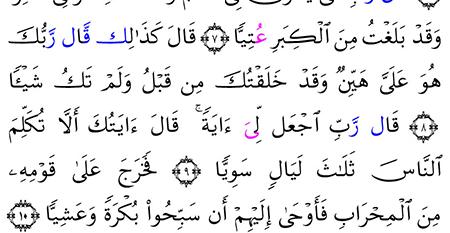 وَقَدۡ بَلَغۡتُ مِنَ ٱلۡكِبَرِ عُتِيّٗا ٧ قَالَ كَذَٰلِك قَّال رَّبُّكَ
هُوَ عَلَيَّ هَيِّنٞ وَقَدۡ خَلَقۡتُكَ مِن قَبۡلُ وَلَمۡ تَكُ شَيۡـٔٗا
٨ قَال رَّبِّ ٱجۡعَل لِّيَ ءَايَةٗۚ قَالَ ءَايَتُكَ أَلَّا تُكَلِّمَ
ٱلنَّاسَ ثَلَٰثَ لَيَالٖ سَوِيّٗا ٩ فَخَرَجَ عَلَىٰ قَوۡمِهِۦ
مِنَ ٱلۡمِحۡرَابِ فَأَوۡحَىٰ إِلَيۡهِمۡ أَن سَبِّحُواْ بُكۡرَةٗ وَعَشِيّٗا ١٠